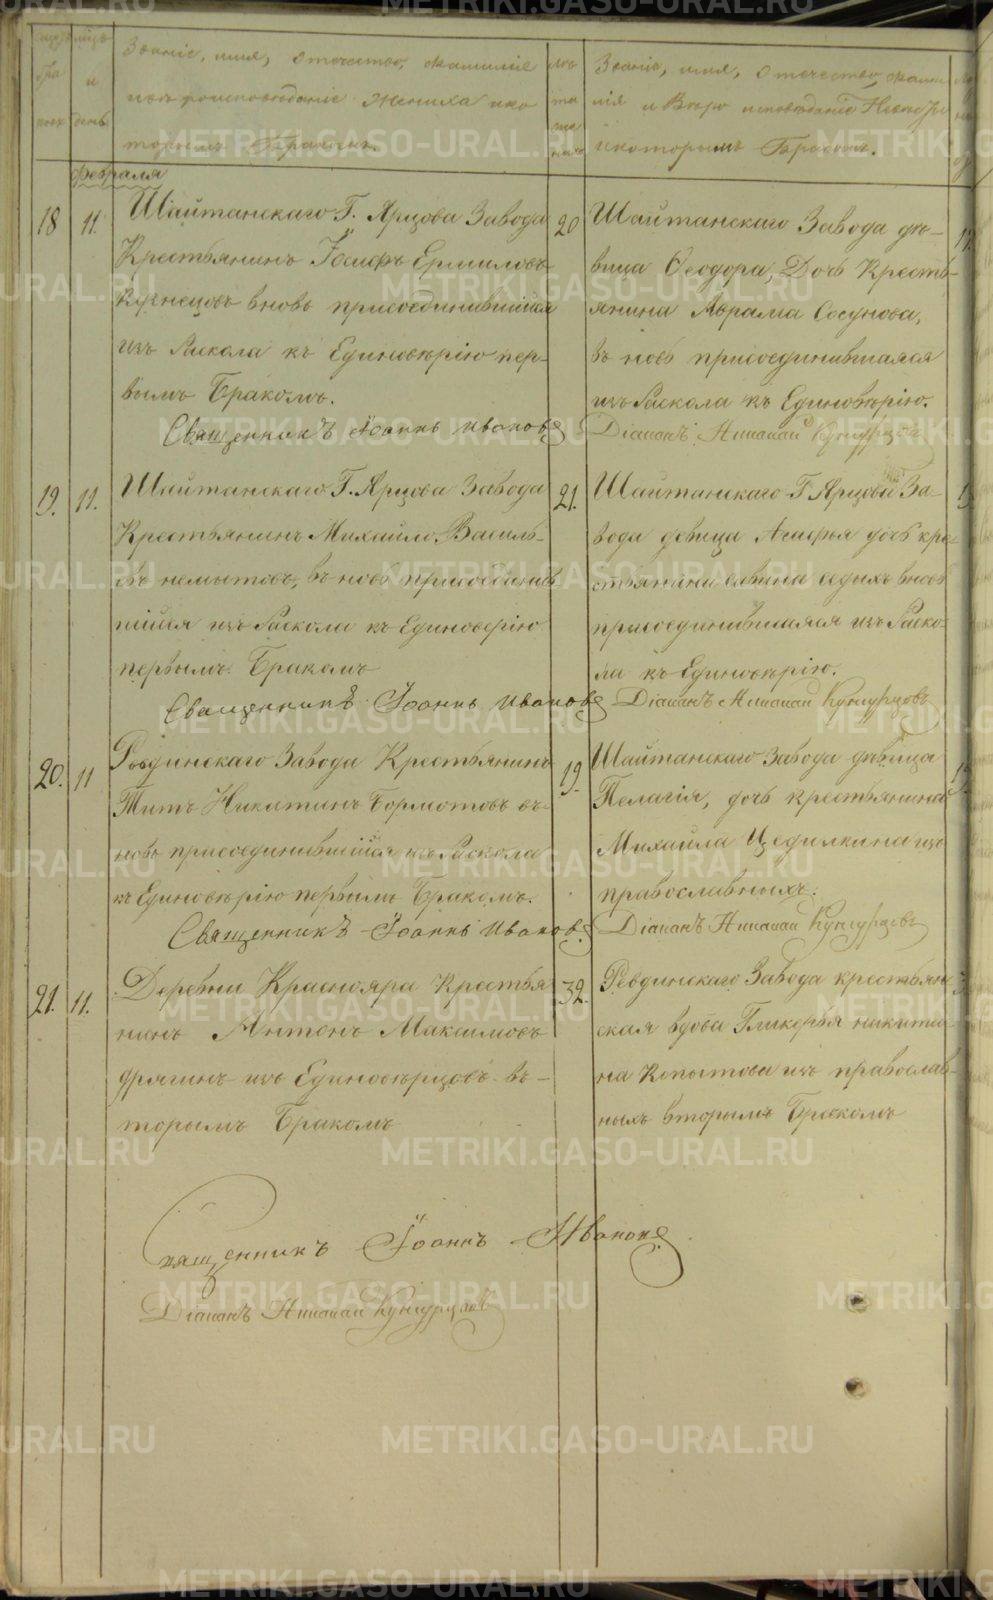 Званіе, имя, отечество, фамиліе
и вѣроисповѣданіе Жениха и ко
торымъ Бракомъ.
лѣ
та
же
ниха
Званіе, имя, отечество, фами
лія и Вѣроисповѣданіе Невѣсты
и которымъ Бракомъ.
мѣсяцъ
и
день
Февраля
18
11.
Шайтанскаго Г. Ярцова Завода
Крестьянинъ Іосифъ Ермиловъ
Кузнецовъ вновь присоединившійся
изъ Раскола къ Единовѣрію пер-
вымъ Бракомъ.
20
Шайтанскаго Завода дѣ-
вица Ѳеодора, Дочь Кресть-
янина Аврама Сосунова,
въ новь присоединившаяся
изъ Раскола къ Единовѣрію.
Священникъ Іоаннъ Ивановъ
Діаконъ Николай Кунгурцовъ
19.
11.
Шайтанскаго Г. Ярцова Завода
Крестьянинъ Михайло Василь-
евъ немытовъ, въ новь присоединив
шійся изъ Раскола къ Единоверію
первымъ Бракомъ
21.
Шайтанскаго Г. Ярцова За-
вода девица Агафья дочь кре-
стьянина савина седыхъ вновь
присоединившаяся изъ Раско-
ла къ Единовѣрію.
Священникъ Іоаннъ Ивановъ
Діаконъ Николай Кунгурцовъ
20.
11
Ревдинскаго Завода Крестьянинъ
Титъ Никитинъ Бормотовъ въ-
новь присоединившійся изъ Раскола
къ Единовѣрію первымъ Бракомъ.
19.
Шайтанскаго Завода дѣвица
Пелагія, дочь крестьянина
Михаила Цедилкина изъ
православныхъ.
Священникъ Іоаннъ Ивановъ.
Діаконъ Николай Кунгурцовъ
21.
11.
Деревни Краснояра Крестья
нинъ Антонъ Максимовъ
дрягинъ изъ Единовѣрцовъ въ-
торымъ Бракомъ
32.
Ревдинскаго Завода крестьян
ская вдова Гликерья никити-
на Копытова изъ православ-
ныхъ вторымъ Бракомъ
Священникъ Іоаннъ Ивановъ
Діаконъ Николай Кунгурцовъ
METRIKI.GASO-URAL.RU